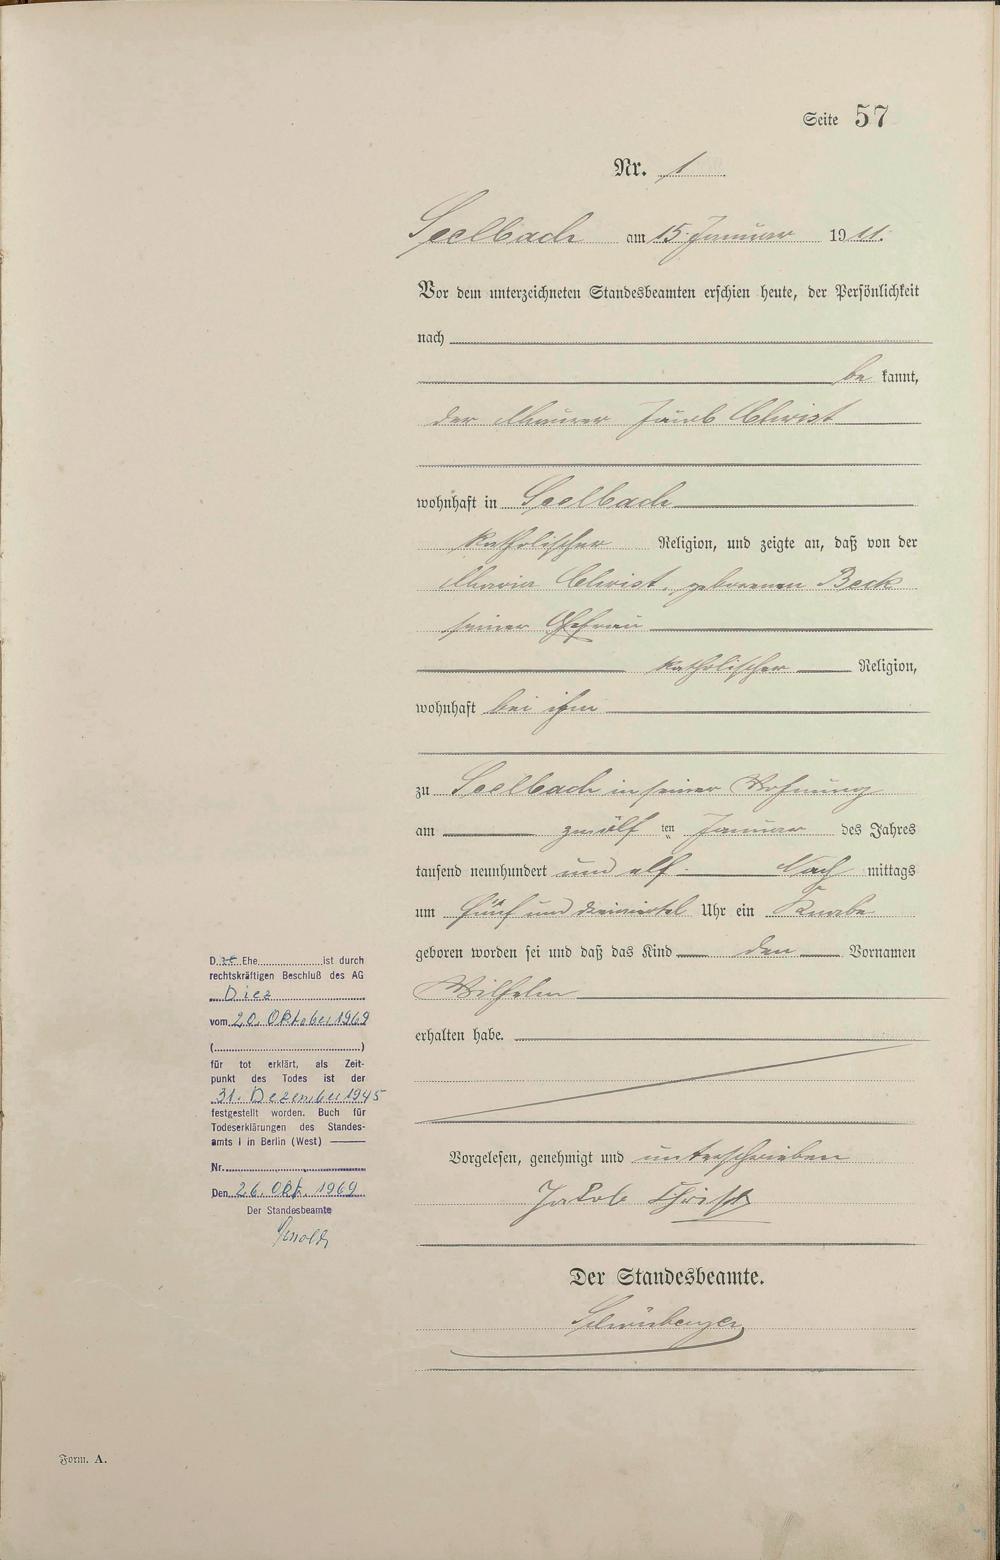 Seite 57
Nr. 1
Seelbach am 15. Januar 1911.
Vor dem unterzeichneten Standesbeamten erschien heute, der Persönlichkeit
nach
be kannt,
der Maurer Jakob Christ
wohnhaft in Seelbach
katholischer Religion, und zeigte an, daß von der
Maria Christ, geborenen Beck
seiner Ehefrau
katholischer Religion,
wohnhaft bei ihm
zu Seelbach in seiner Wohnung
am zwölf ten Januar des Jahres
tausend neunhundert und elf Nach mittags
um fünf und dreiviertel Uhr ein Knabe
geboren worden sei und daß das Kind den Vornamen
Wilhelm
erhalten habe.
Vorgelesen, genehmigt und unterschrieben
Jakob Christ
Der Standesbeamte.
D Ehe ist durch
rechtskräftigen Beschluß des AG
Diez
vom 20. Oktober 1969
( )
für tot erklärt, als Zeit-
punkt des Todes ist der
31. Dezember 1945
festgestellt worden. Buch für
Todeserklärungen des Standes-
amts I in Berlin (West)
Nr.
Den 26. Okt. 1969
Der Standesbeamte
Form. A.